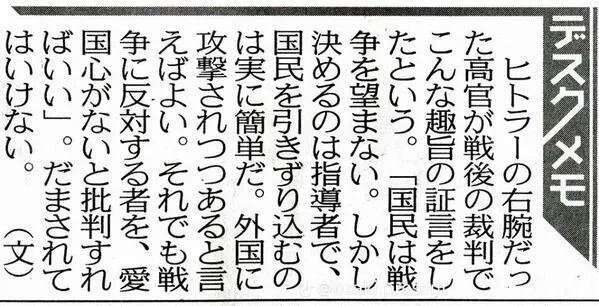 デスクメモ
ヒトラーの右腕だっ
た高官が戦後の裁判で
こんな趣旨の証言をし
たという。「国民は戦
争を望まない。しかし
決めるのは指導者で、
国民を引きずり込むの
は実に簡単だ。外国に
攻撃されつつあると言
えばよい。それでも戦
争に反対する者を、愛
国心がないと批判すれ
ばいい」。だまされて
はいけない。　　（文）